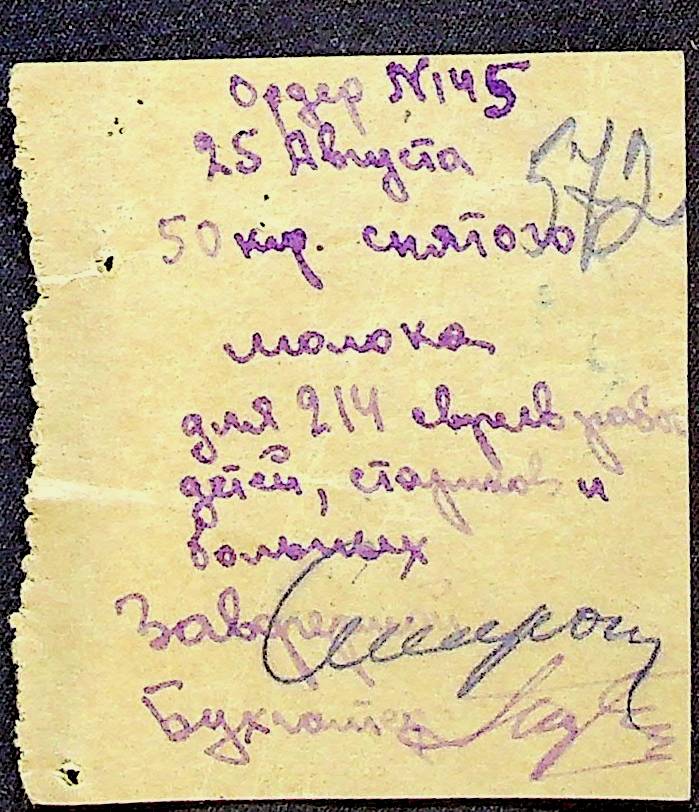 Ордер №145
25 Августа
572
50 кгр. снятого
молока
для 214 евреев рабо
детей, стариков и
больных
Заведующий
Бухгалтер